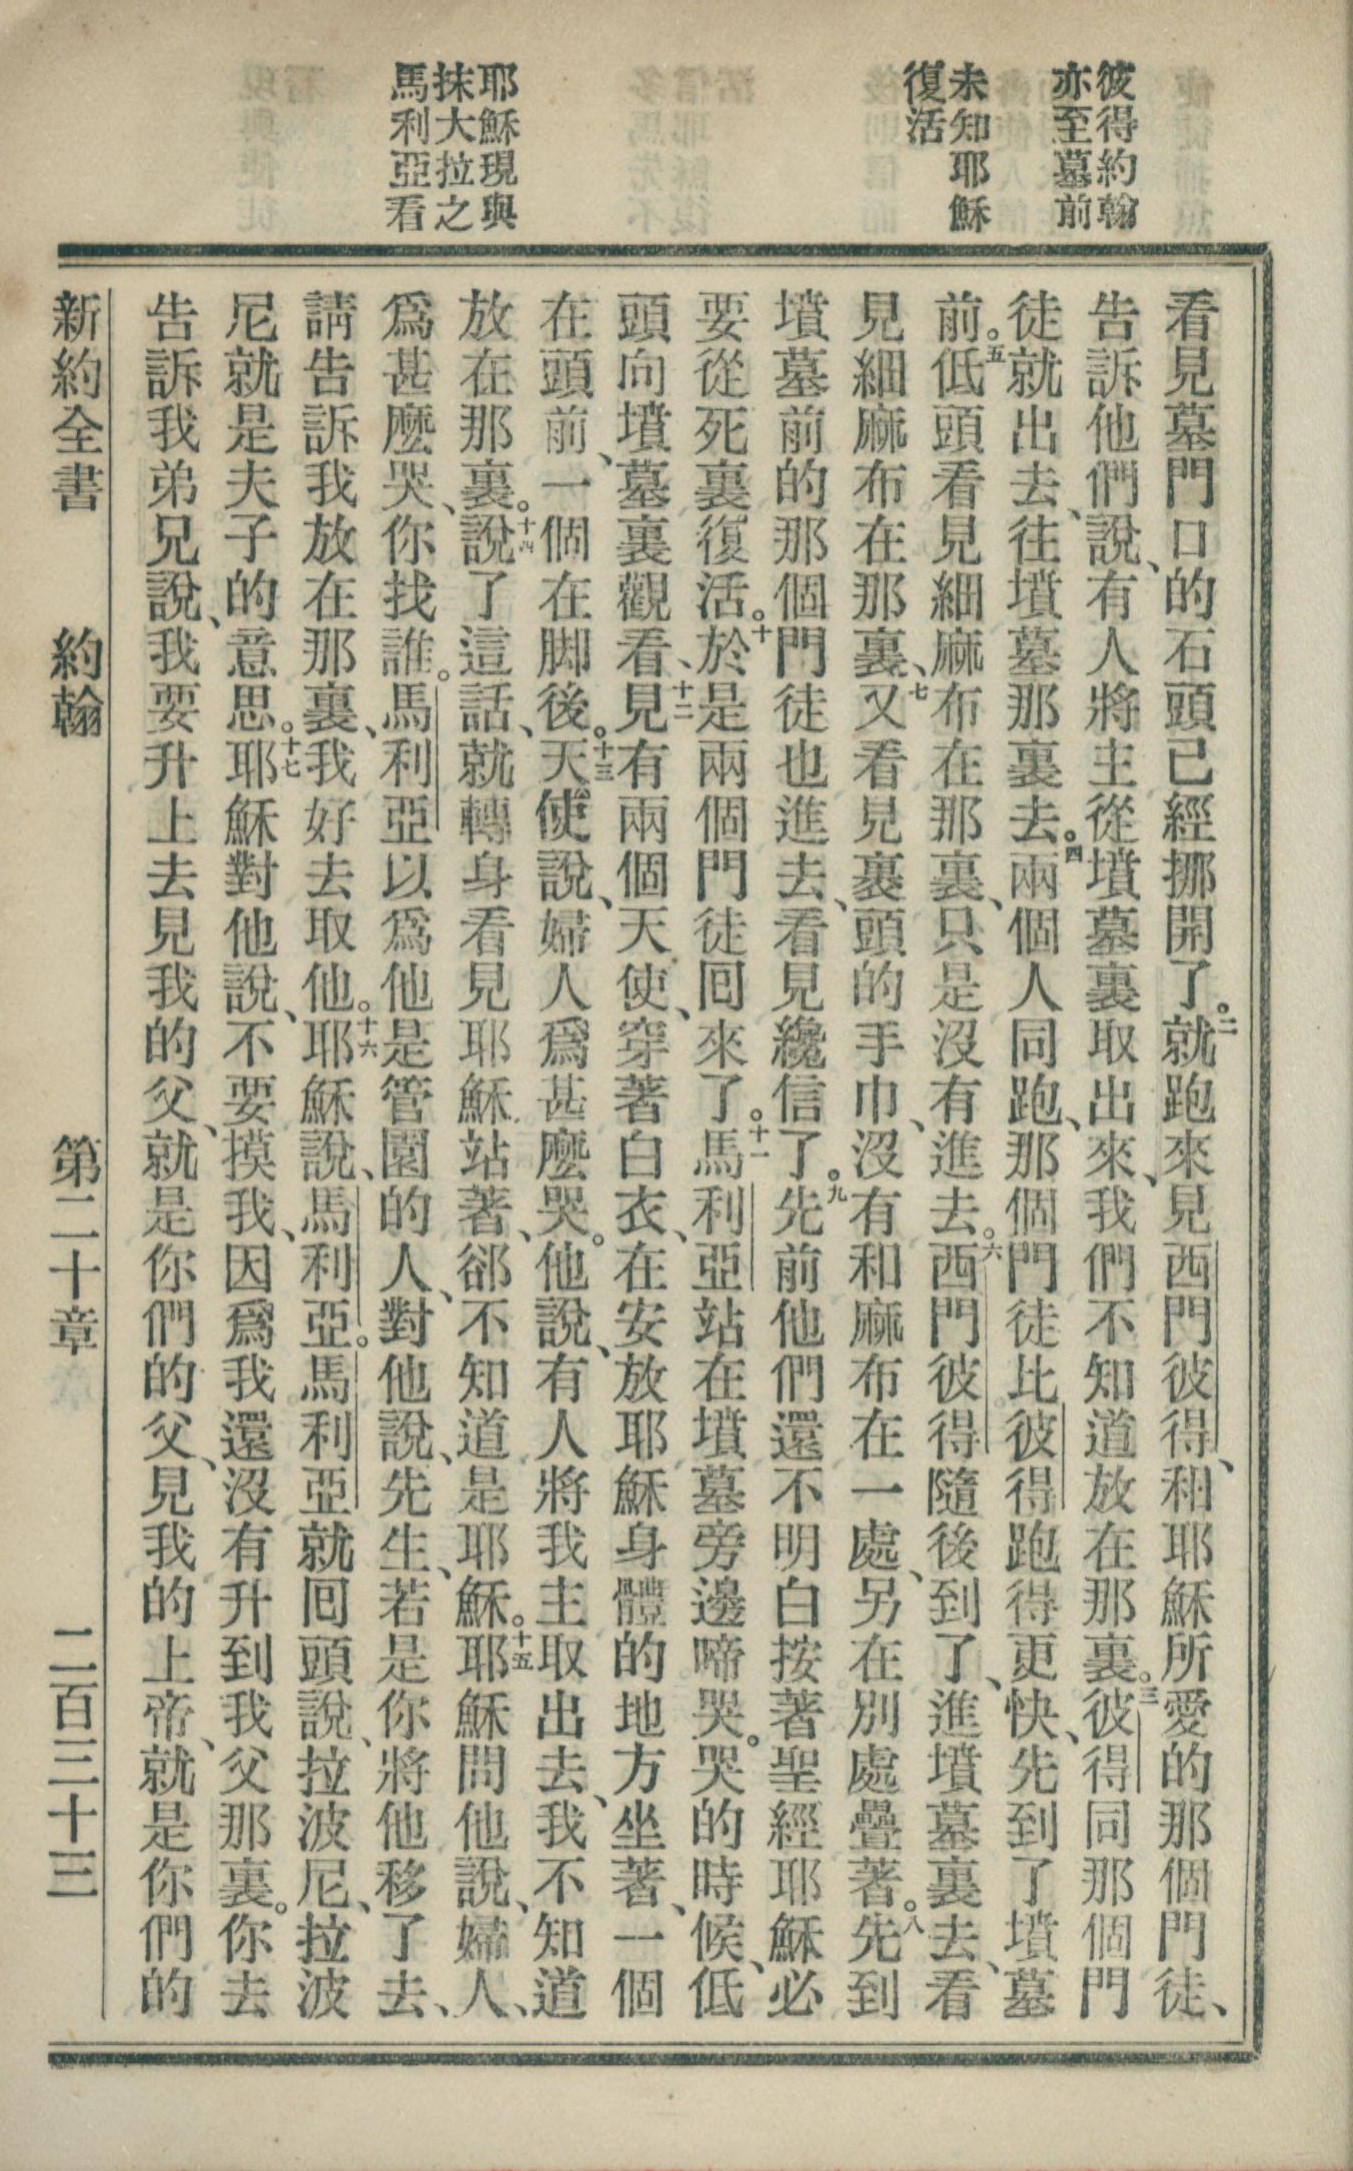 彼得約翰
亦至墓前
未知耶穌
復活
耶穌現與
抹大拉之
馬利亞看
看見墓門口的石頭已經挪開了。二就跑來見西門彼得、和耶穌所愛的那個門徒、
告訴他們說、有人將主從墳墓裏取出來、我們不知道放在那裏。三彼得同那個門
徒就出去、往墳墓那裏去。四兩個人同跑、那個門徒比彼得跑得更快、先到了墳墓
前。五低頭看見細麻布在那裏、只是沒有進去。六西門彼得隨後到了、進墳墓裏去、看
見細麻布在那裏、七又看見裹頭的手巾、沒有和麻布在一處、另在別處疊著。八先到
墳墓前的那個門徒也進去、看見纔信了。九先前他們還不明白按著聖經耶穌必
要從死裏復活。十於是兩個門徒囘來了。十一馬利亞站在墳墓旁邊啼哭。哭的時候、低
頭向墳墓裏觀看、十二見有兩個天使、穿著白衣、在安放耶穌身體的地方坐著、一個
在頭前、一個在脚後。十三天使說、婦人爲甚麼哭。他說、有人將我主取出去、我不知道
放在那裏。十四說了這話、就轉身看見耶穌站著、郤不知道是耶穌。十五耶穌問他說、婦人、
爲甚麼哭、你找誰。馬利亞以爲他是管園的人、對他說、先生、若是你將他移了去、
請告訴我放在那裏、我好去取他。十六耶穌說、馬利亞。馬利亞就囘頭說、拉波尼、拉波
尼就是夫子的意思。十七耶穌對他說、不要摸我、因爲我還沒有升到我父那裏。你去
告訴我弟兄說、我要升上去見我的父、就是你們的父、見我的上帝、就是你們的
新約全書 約翰 第二十章 二百三十三